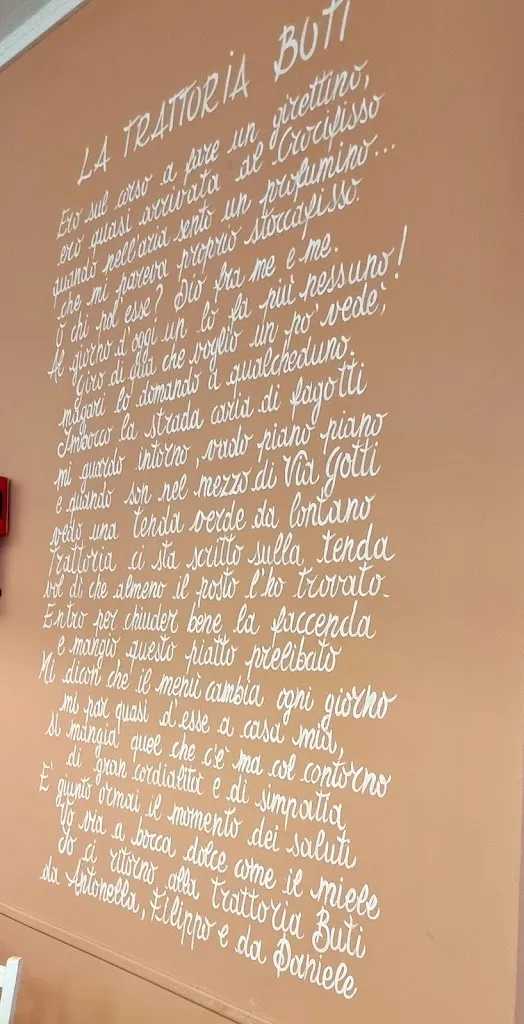 LA TRATTORIA BUTI
Ero sul corso a fare un girettino,
ero quasi arrivata al Crocifisso
quando nell'aria sento un profumino...
che mi pareva proprio stoccafisso.
O chi pol esse? Dio fra me e me.
Al giorno d'oggi un lo fa più nessuno!
Giro di qua che voglio un po' vede',
magari lo domando a qualcheduno.
Imbocco la strada caria di fagotti
mi guardo intorno, vado piano piano
e quando son nel mezzo di Via Gotti
vedo una tenda verde da lontano
Trattoria ci sta scritto sulla tenda
vol di che almeno il posto l'ho trovato.
Entro per chiuder bene la faccenda
e mangio questo piatto prelibato
Mi dicon che il menù cambia ogni giorno
mi par quasi d'esse a casa mia,
si mangia quel che c'è ma col contorno
di gran cordialità e di simpatia
E' giunto ormai il momento dei saluti
Vo via a bocca dolce come il miele
Io ci ritorno alla Trattoria Buti
da Antonella, Filippo e da Daniele